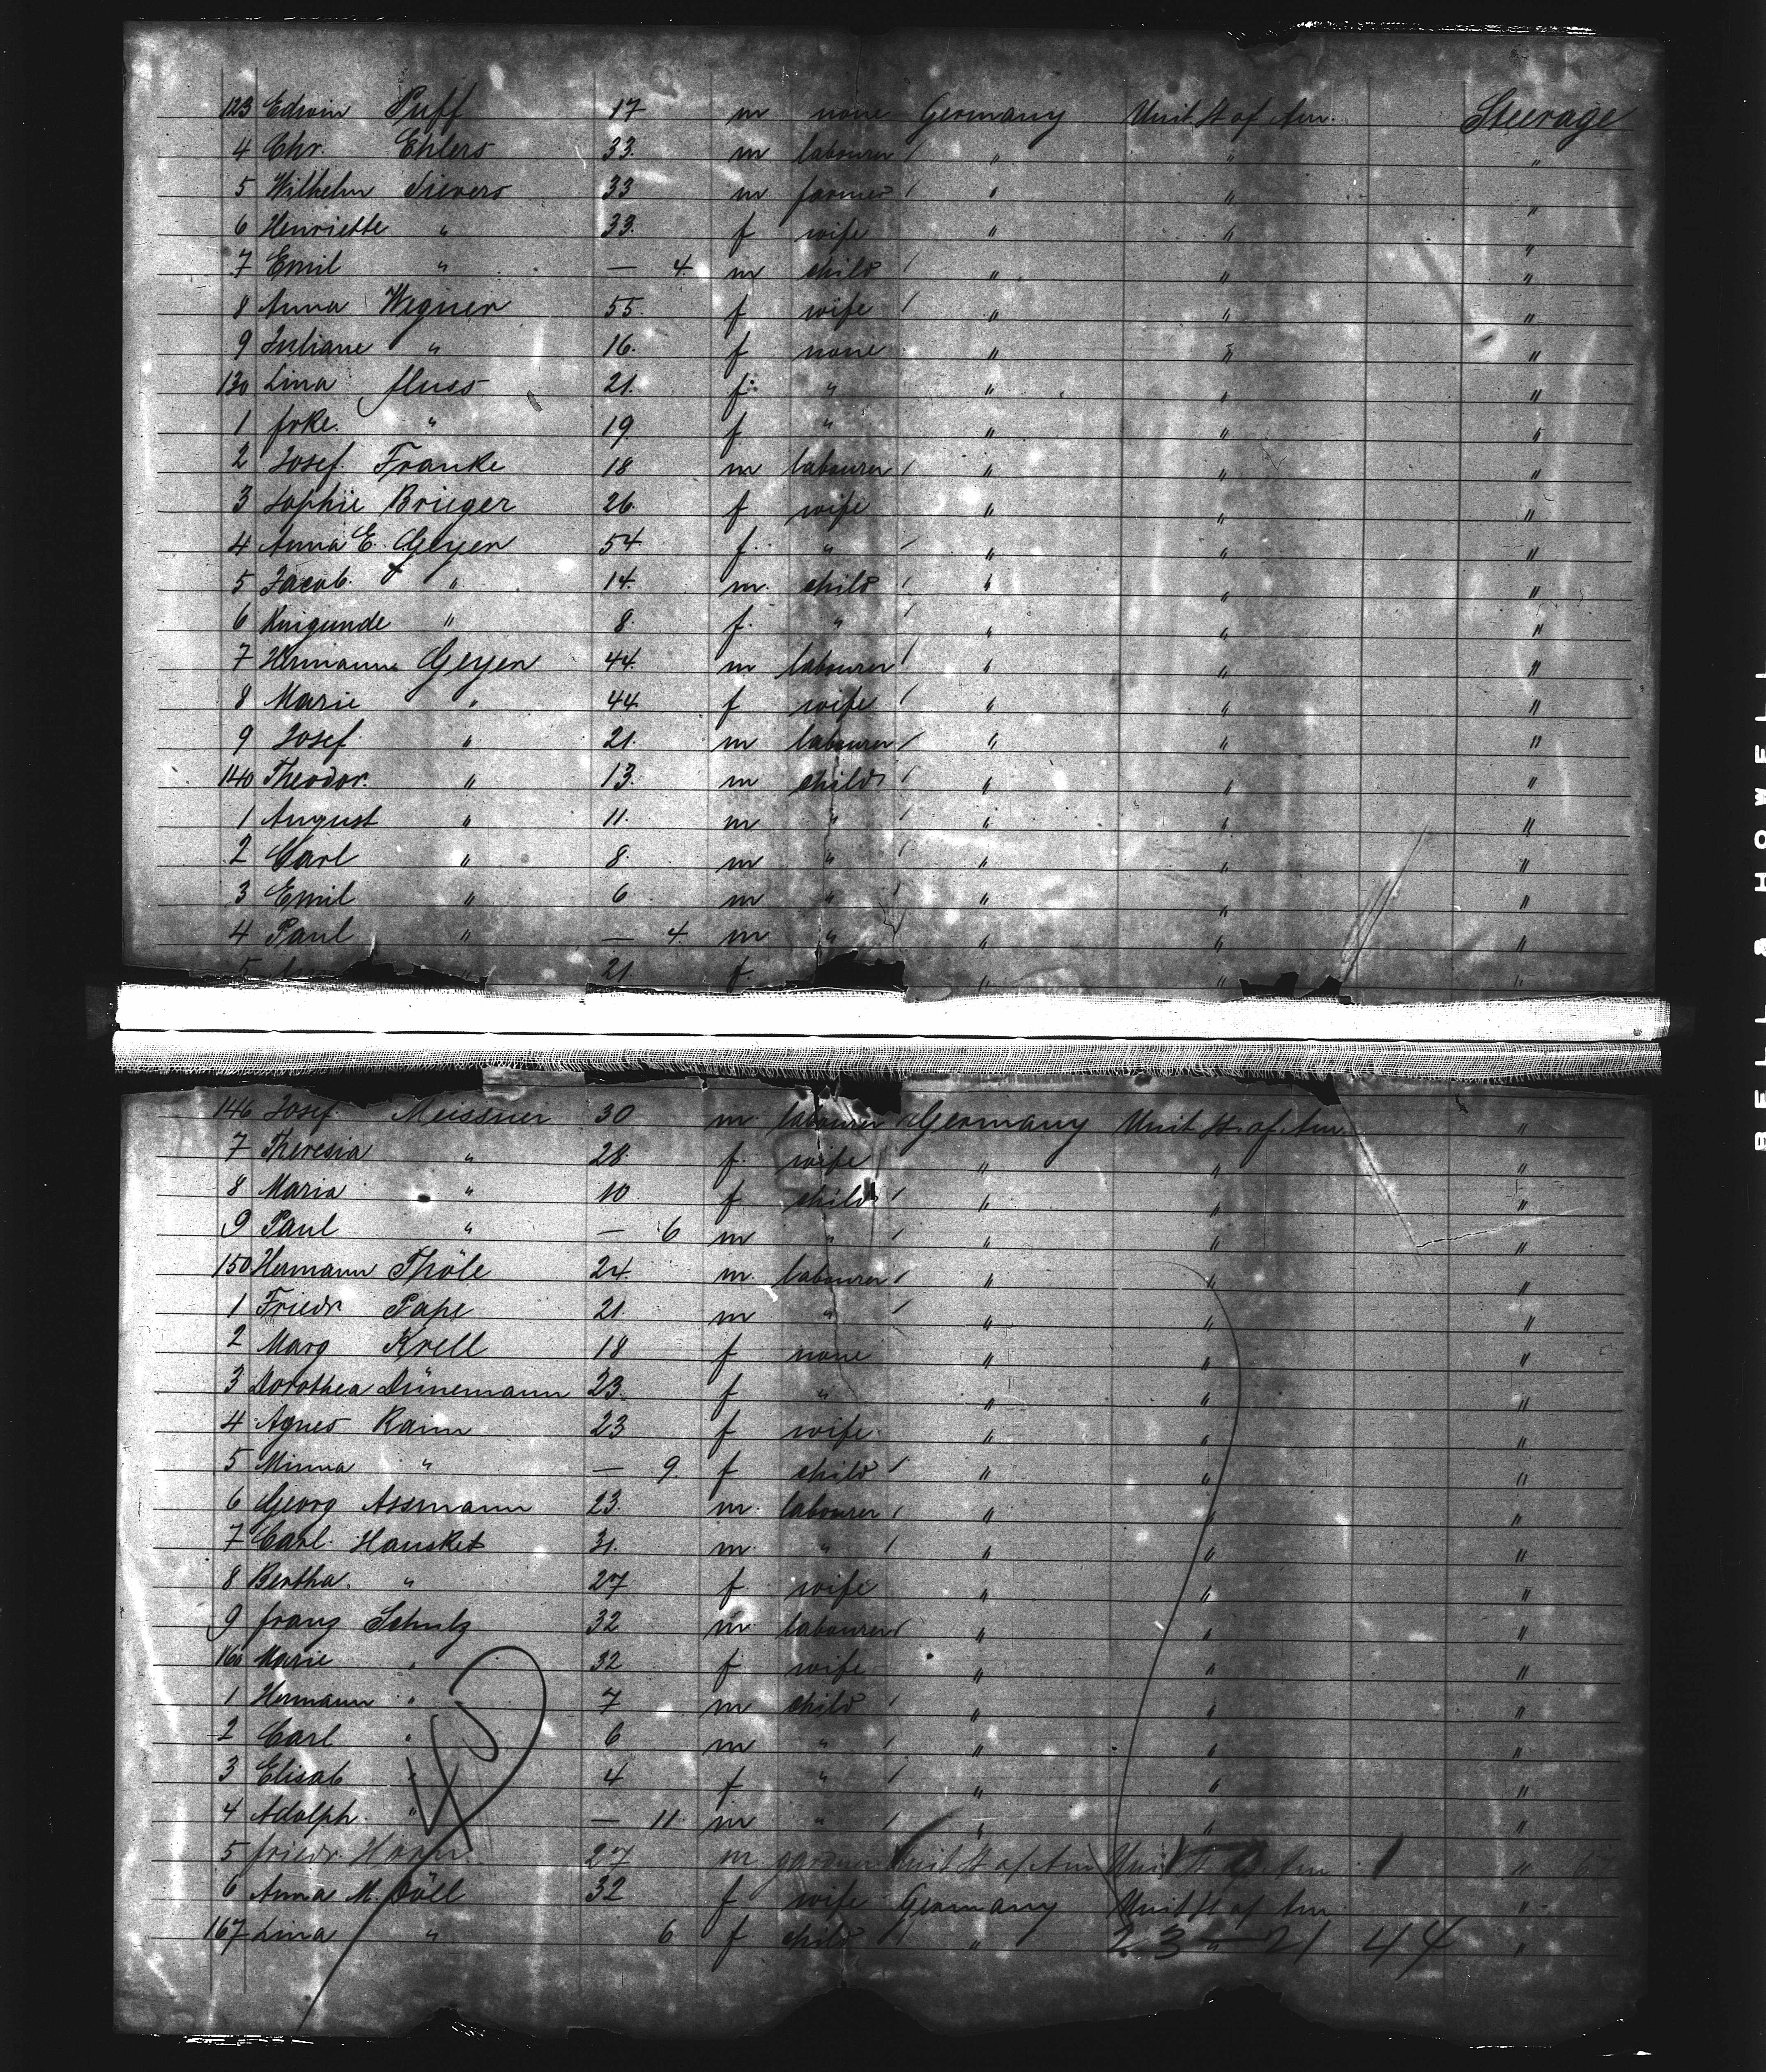 123 Edwin Puff 17 m none Germany Unit St of Am. Steerage
4 Chr. Ehlers 33. m labourer / " " "
5 Wilhelm Sievers 33 m farmer / " " "
6 Henriette " 33. f wife " " "
7 Emil " — 4. m child / " " "
8 Anna Wegner 55. f wife / " " "
9 Juliane " 16. f none " " "
130 Lina 21. f. " " " "
1 " 19. f " " " "
2 Josef. Franke 18 m labourer / " " "
3 Sophie Brieger 26. f wife " " "
4 Anna E. Geyer 54 f. " / " " "
5 Jacob. " 14. m. child / " " "
6 Kunigunde " 8. f. " / " " "
7 Hermann Geyer 44. m labourer / " " "
8 Marie " 44 f wife / " " "
9 Josef " 21. m labourer / " " "
140 Theodor. " 13. m child / " " "
1 August " 11. m " / " " "
2 Carl " 8. m " / " " "
3 Emil " 6. m " " " "
4 Paul " — 4. m " " " "
5 " 21. f. " " "
146 Josef. Meissner 30 m. labourer Germany Unit St. of Am. "
7 Theresia " 28 f. wife " " "
8 Maria " 10 f child / " " "
9 Paul " — 6 m " / " " "
150 Hermann Thöle 24. m. labourer / " " "
1 Friedr Pape 21. m " / " " "
2 Marg Krell 18 f none " " "
3 Dorothea Dünemann 23. f " " " "
4 Agnes Ramm 23 f wife " " "
5 Minna " — 9. f child / " " "
6 Georg Assmann 23. m. labourer / " " "
7 Carl. Hausket 31. m. " / " " "
8 Bertha. " 27 f wife " " "
9 Franz Schulz 32 m. labourer / " " "
160 Marie " 32 f wife " " "
1 Hermann " 7 m child / " " "
2 Carl " 6 m " / " " "
3 Elisab " 4 f " / " " "
4 Adolph. " — 11. m " / " " "
5 Friedr. Horn. 27 m gardener Unit St of Am Unit St of Am "
6 Anna M. Döll 32 f wife Germany Unit St of Am "
167 Lina " 6 f child / " " "
23 — 21 44
BELL & HOWELL